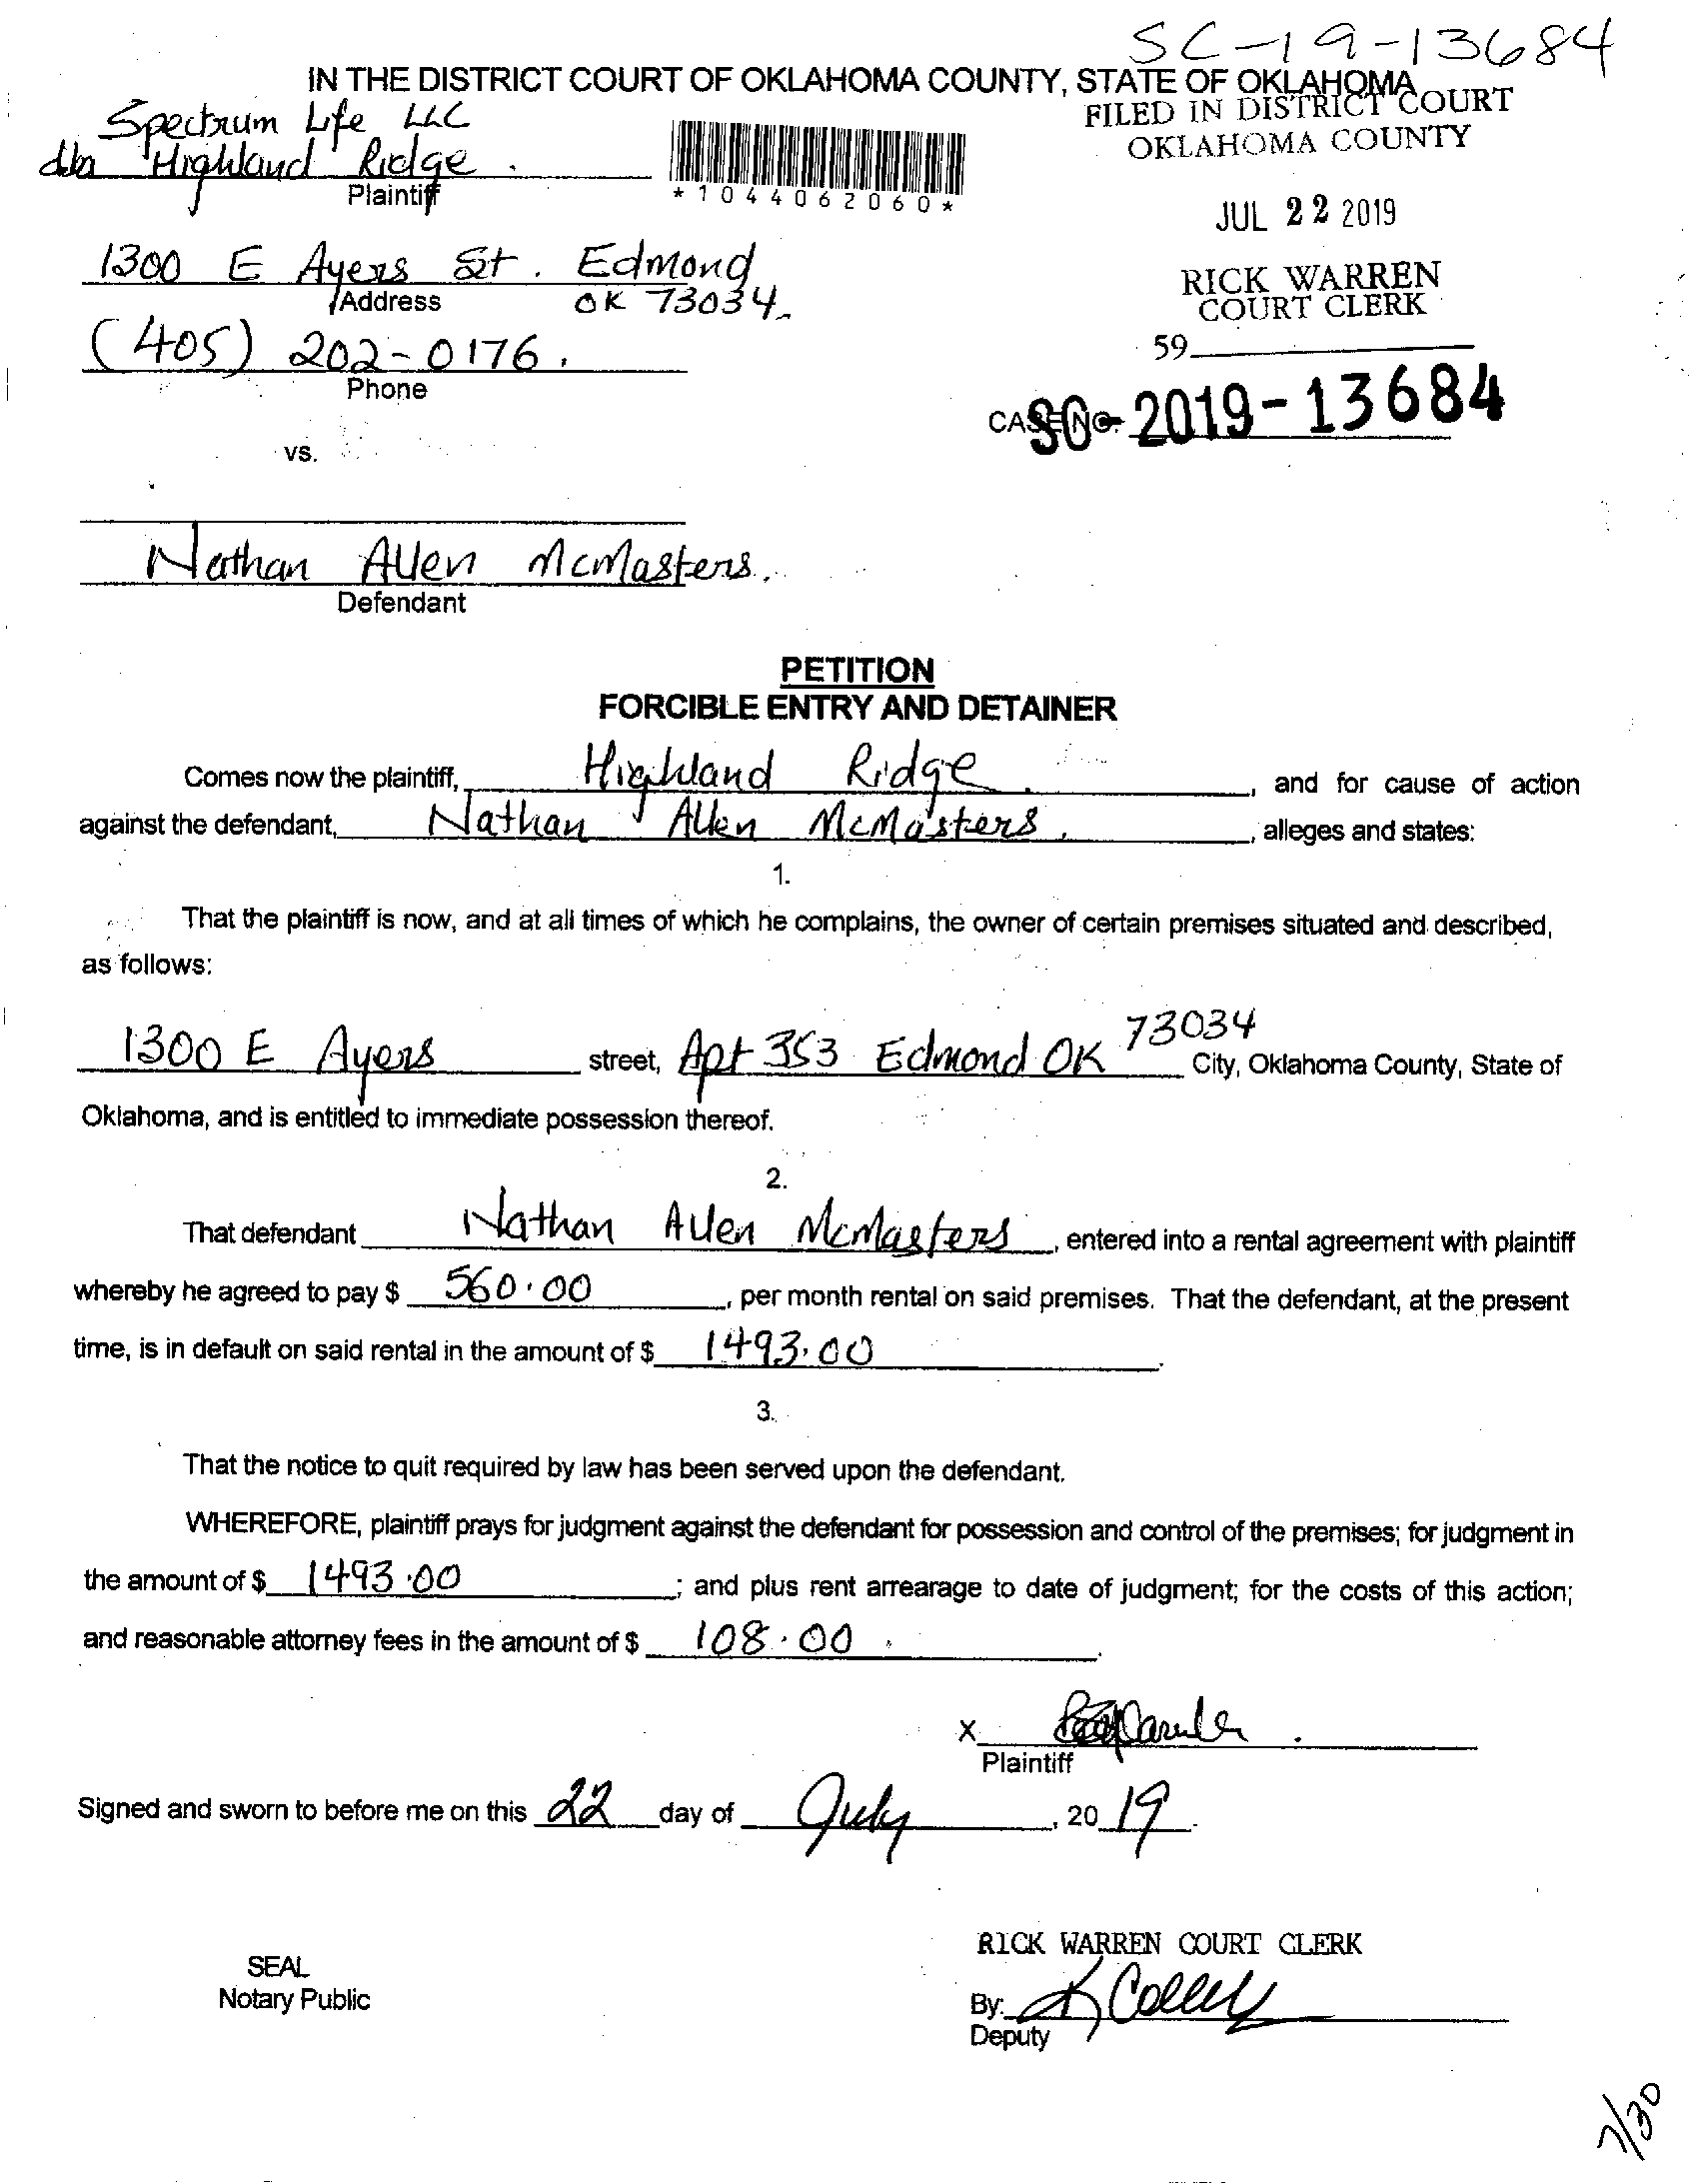 SC-19-13684
IN THE DISTRICT COURT OF OKLAHOMA COUNTY, STATE OF OKLAHOMA
FILED IN DISTRICT COURT
OKLAHOMA COUNTY
Spectrum Life LLC
dba Highland Ridge.
Plaintiff
*1044062060*
JUL 22 2019
1300 E Ayers St. Edmond
Address
OK 73034
RICK WARREN
COURT CLERK
(405) 202-0176.
Phone
59
CASE NO. SC-2019-13684
vs.
Nathan Allen McMasters.
Defendant
PETITION
FORCIBLE ENTRY AND DETAINER
Comes now the plaintiff, Highland Ridge., and for cause of action
against the defendant, Nathan Allen McMasters., alleges and states:
1.
That the plaintiff is now, and at all times of which he complains, the owner of certain premises situated and described,
as follows:
1300 E Ayers street, Apt 353 Edmond OK 73034 City, Oklahoma County, State of
Oklahoma, and is entitled to immediate possession thereof.
2.
That defendant Nathan Allen McMasters, entered into a rental agreement with plaintiff
whereby he agreed to pay $ 560.00, per month rental on said premises. That the defendant, at the present
time, is in default on said rental in the amount of $ 1493.00.
3.
That the notice to quit required by law has been served upon the defendant.
WHEREFORE, plaintiff prays for judgment against the defendant for possession and control of the premises; for judgment in
the amount of $ 1493.00; and plus rent arrearage to date of judgment; for the costs of this action;
and reasonable attorney fees in the amount of $ 108.00.
X
Plaintiff
Signed and sworn to before me on this 22 day of July, 2019.
RICK WARREN COURT CLERK
SEAL
Notary Public
By: K Colley
Deputy
7/30